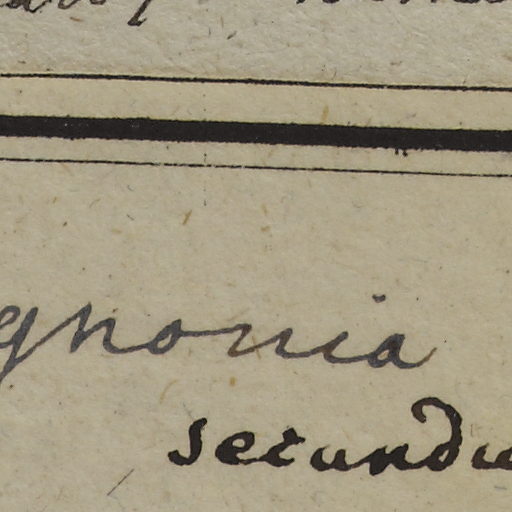 gnonia
secundu